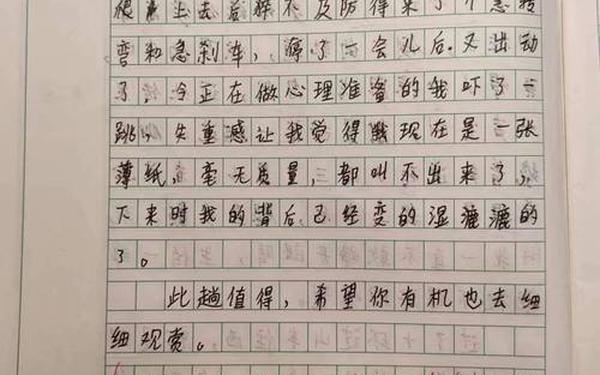 爬上去后猝不及防得来了个急转
弯和急刹车，停了一会儿后.又出动
了,令正在做心理准备的我吓了一
跳，失重感让我觉得我现在是一张
薄纸,毫无质量,都叫不出来了,
下来时我的背后已经变的湿漉漉的
了。
此趟值得，希望你有机也去细
细观赏。